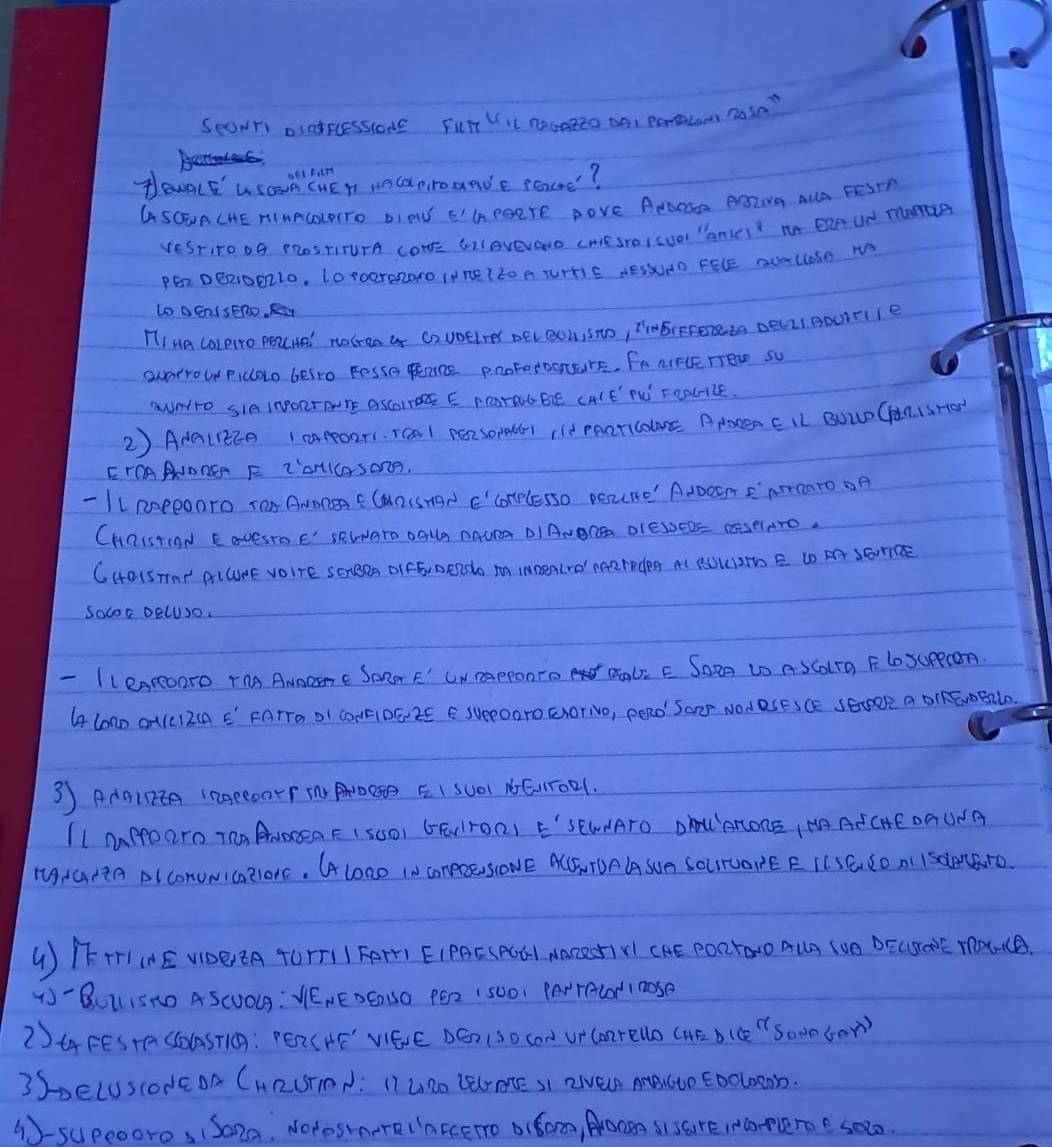 SPUNTI DI RIFLESSIONE FILM "IL RAGAZZO DAI PANTALONI ROSA"
1) QUAL È LA SCENA DEL FILM CHE TI HA COLPITO DI PIÙ E PERCHÉ?
LA SCENA CHE MI HA COLPITO DI PIÙ E' LA PARTE DOVE ANDREA ARRIVA ALLA FESTA
VESTITO DA PROSTITUTA COME GLI AVEVANO CHIESTO I SUOI "AMICI" MA ERA UN TRAPPOLA
PER DERIDERLO. LO PORTARONO IN MEZZO A TUTTI E NESSUNO FECE QUALCOSA MA
LO DERISERO.
MI HA COLPITO PERCHÉ MOSTRA LA CRUDELTÀ DEL BULLISMO, L'INDIFFERENZA DEGLI ADULTI E
QUANTO UN PICCOLO GESTO POSSA FERIRE PROFONDAMENTE. FA RIFLETTERE SU
QUANTO SIA IMPORTANTE ASCOLTARE E PROTEGGERE CHI E' PIÙ FRAGILE.
2) ANALIZZA I RAPPORTI TRA I PERSONAGGI, IN PARTICOLARE ANDREA E IL BULLO CHRISTIAN
E TRA ANDREA E L'AMICA SARA.
- IL RAPPORTO TRA ANDREA E CHRISTIAN E' COMPLESSO PERCHE' ANDREA E' ATTRATO DA
CHRISTIAN E QUESTO E' SEGNATO DALLA PAURA DI ANDREA DI ESSERE RESPINTO.
CHRISTIAN ALCUNE VOLTE SEMBRA DIFENDERLO MA IN REALTA' PARTECIPA AL BULLISMO E LO FA SENTIRE
SOLO E DELUSO.
- IL RAPPORTO TRA ANDREA E SARA E' UN RAPPORTO E SARA LO ASCOLTA E LO SUPPORTA.
LA LORO AMICIZIA E' FATTA DI CONFIDENZE E SUPPORTO EMOTIVO, PERO' SARA NON RIESCE SEMPRE A DIFENDERLO.
3) ANALIZZA I RAPPORTI TRA ANDREA E I SUOI GENITORI.
IL RAPPORTO TRA ANDREA E I SUOI GENITORI E' SEGNATO DALL'AMORE, MA ANCHE DA UNA
MANCANZA DI COMUNICAZIONE. LA LORO INCOMPRENSIONE ACCENTUA LA SUA SOLITUDINE E IL SENSO DI ISOLAMENTO.
4) METTI IN EVIDENZA TUTTI I FATTI E I PASSAGGI NARRATIVI CHE PORTANO ALLA SUA DECISIONE TRAGICA.
1) - BULLISMO A SCUOLA: VIENE DERISO PER I SUOI PANTALONI ROSA
2) LA FESTA SCOLASTICA: PERCHE' VIENE DERISO CON UN CARTELLO CHE DICE "SONO GAY"
3) - DELUSIONE DA CHRISTIAN: IL LORO LEGAME SI RIVELA AMBIGUO E DOLOROSO.
4) - SUPPORTO DI SARA. NONOSTANTE L'AFFETTO DI SARA, ANDREA SI SENTE INCOMPLETO E SOLO.